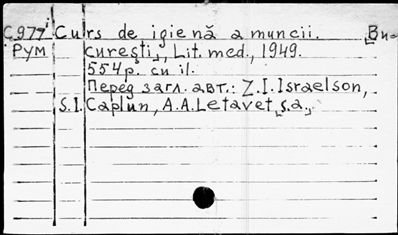 C977 Curs de igienă a muncii. [Bu-
Рум curești], Lit. med., 1949.
554p. cu il.
Перед загл. авт.: Z.I.Israelson,
S.I.Caplun, A.A.Letavet [ș.a.]